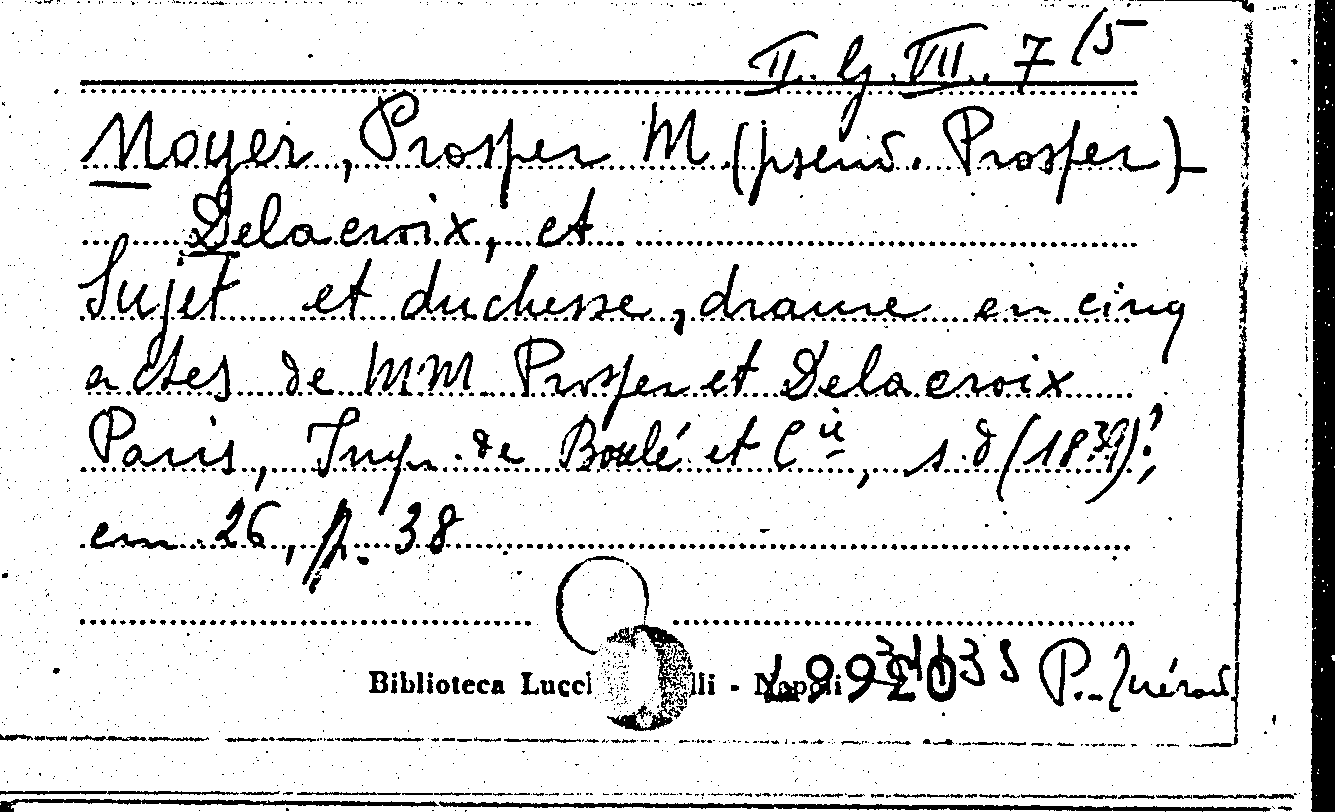 II. G. VII. 7 /5
Noyer, Prosper M. (pseud. Prosper)
Delacroix, et
Sujet et duchesse, drame en cinq
actes de MM Prosper et Delacroix
Paris, Imp. de Boulé et Cie, s.d (1839)?,
cm. 26, p. 38
Biblioteca Lucc lli - Napoli
P. Quérard